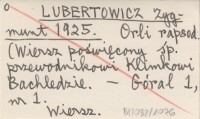 LUBERTOWICZ Zyg-
munt 1925. Orli rapsod.
(Wiersz poświęcony śp.
przewodnikowi Klimkowi
Bachledzie. – Góral 1,
nr 1.
Wiersz.